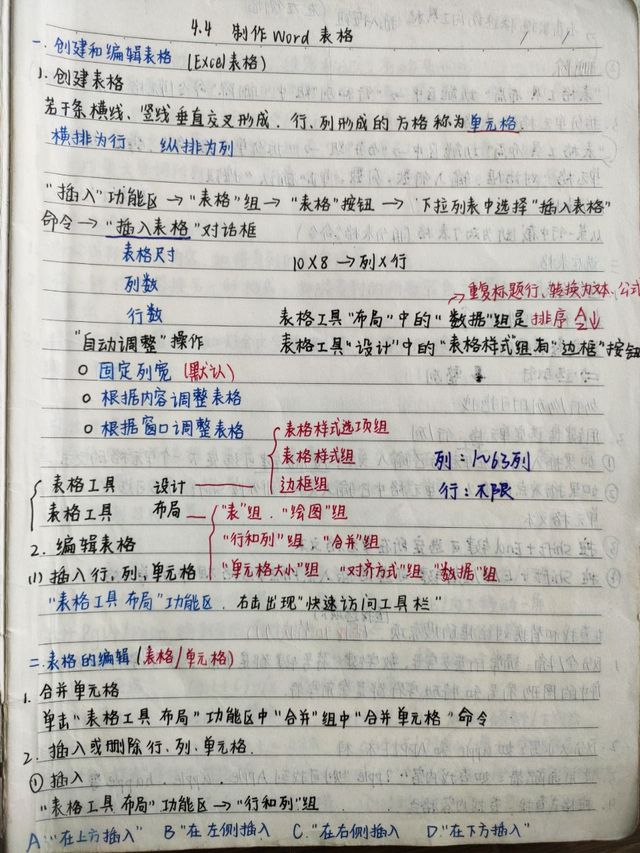 4.4 制作Word 表格
一. 创建和编辑表格 (Excel表格)
1. 创建表格
若干条横线、竖线垂直交叉形成. 行、列形成的方格称为单元格.
横排为行 纵排为列
"插入"功能区→"表格"组→"表格"按钮→下拉列表中选择"插入表格"
命令→"插入表格"对话框
表格尺寸 10×8→列×行
列数 →重复标题行、转换为文本、公式
行数 表格工具"布局"中的"数据"组是排序
"自动调整"操作 表格工具"设计"中的"表格样式"组有"边框"按钮
○ 固定列宽 (默认)
○ 根据内容调整表格
○ 根据窗口调整表格 表格样式选项组
表格样式组 列:1~63列
表格工具 设计 边框组 行:不限
表格工具 布局 "表"组. "绘图"组
2. 编辑表格 "行和列"组 "合并"组
(1) 插入行、列、单元格 "单元格大小"组 "对齐方式"组 "数据"组
"表格工具 布局"功能区. 右击出现"快速访问工具栏"
二.表格的编辑(表格/单元格)
1. 合并单元格
单击"表格工具 布局"功能区中"合并"组中"合并单元格"命令
2. 插入或删除行、列、单元格.
① 插入
"表格工具 布局"功能区→"行和列"组
A:"在上方插入" B"在左侧插入 C."在右侧插入 D."在下方插入"